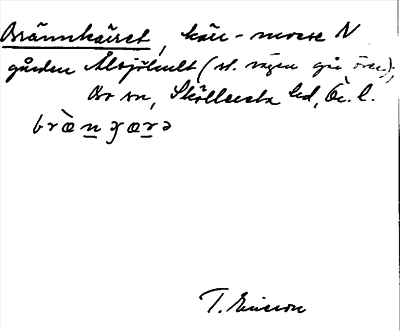 Brännkärret, kärr-mosse N
gården Älvsjöhult (st. vägen går över);
Bo sn, Sköllersta hd, Ör. l.
bræ̀n̲ɟær̲ə
T. Ericson